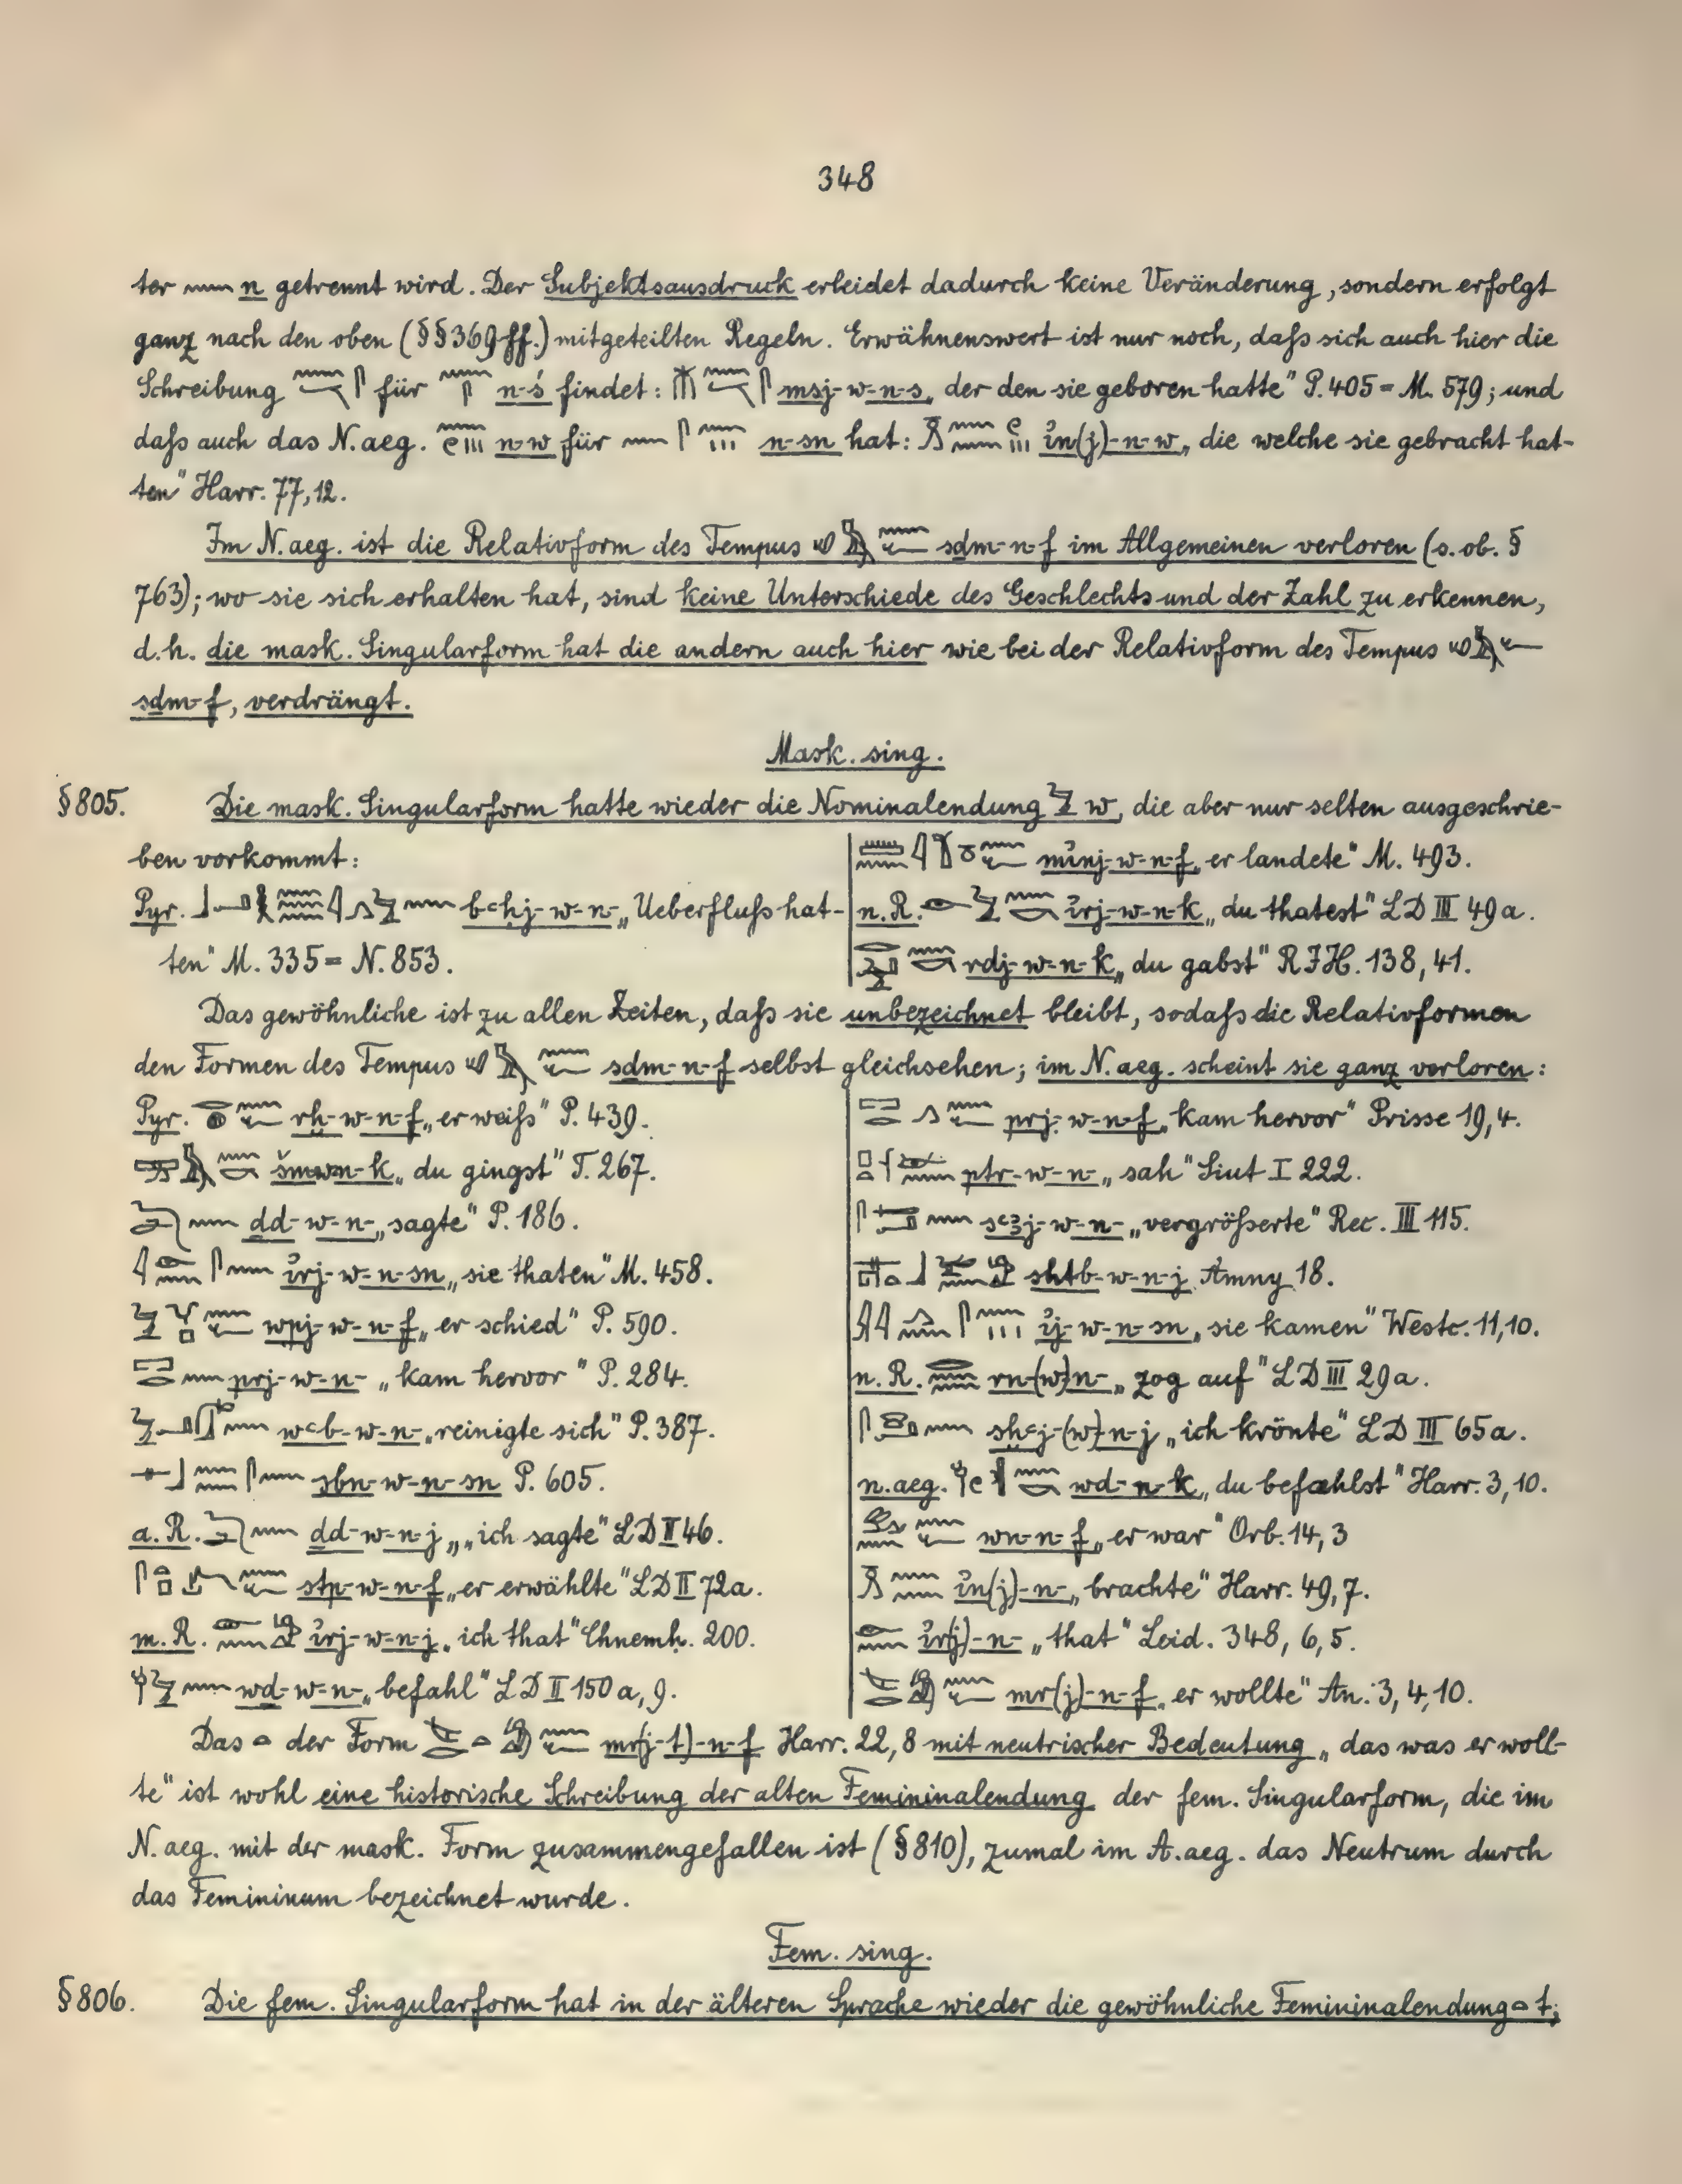 348
ter 𓈖 n getrennt wird. Der Subjektsausdruck erleidet dadurch keine Veränderung, sondern erfolgt
ganz nach den oben (§§369ff.) mitgeteilten Regeln. Erwähnenswert ist nur noch, daſs sich auch hier die
Schreibung für n-ś findet: msj-w-n-s „der den sie geboren hatte" P. 405 = M. 579; und
daſs auch das N.aeg. n-w für n-sn hat: i҆n(j)-n-w „die welche sie gebracht hat-
ten" Harr. 77,12.
Im N.aeg. ist die Relativform des Tempus sḏm-n-f im Allgemeinen verloren (s. ob. §
763); wo sie sich erhalten hat, sind keine Unterschiede des Geschlechts und der Zahl zu erkennen,
d.h. die mask. Singularform hat die andern auch hier wie bei der Relativform des Tempus
sḏm-f, verdrängt.
Mask. sing.
§805. Die mask. Singularform hatte wieder die Nominalendung 𓅱 w, die aber nur selten ausgeschrie-
ben vorkommt:
Pyr. bꜥḥj-w-n- „Ueberfluſs hat-
ten" M. 335 = N. 853.
mi҆nj-w-n-f „er landete" M. 493.
n.R. i҆rj-w-n-k „du thatest" LD III 49a.
rdj-w-n-k „du gabst" RJH. 138, 41.
Das gewöhnliche ist zu allen Zeiten, daſs sie unbezeichnet bleibt, sodaſs die Relativformen
den Formen des Tempus sḏm-n-f selbst gleichsehen; im N.aeg. scheint sie ganz verloren:
Pyr. rḫ-w-n-f „er weiſs" P. 439.
šmwn-k „du gingst" T. 267.
ḏd-w-n- „sagte" P. 186.
i҆rj-w-n-sn „sie thaten" M. 458.
wpj-w-n-f „er schied" P. 590.
prj-w-n- „kam hervor" P. 284.
wꜥb-w-n- „reinigte sich" P. 387.
sbn-w-n-sn P. 605.
a.R. ḏd-w-n-j „„ich sagte" LD II 46.
stp-w-n-f „er erwählte" LD II 72a.
m.R. i҆rj-w-n-j „ich that" Chnemh. 200.
wḏ-w-n- „befahl" LD II 150a, 9.
prj-w-n-f „kam hervor" Prisse 19,4.
ptr-w-n- „sah" Siut I 222.
sꜥꜣj-w-n- „vergröſserte" Rec. III 115.
sḥtb-w-n-j Amny 18.
i҆j-w-n-sn „sie kamen" Westc. 11,10.
n.R. rn-(w)-n- „zog auf" LD III 29a.
sḫꜥj-(w)-n-j „ich krönte" LD III 65a.
n.aeg. wḏ-n-k „du befahlst" Harr. 3,10.
wn-n-f „er war" Orb. 14,3
i҆n(j)-n- „brachte" Harr. 49,7.
i҆r(j)-n- „that" Leid. 348, 6,5.
mr(j)-n-f „er wollte" An. 3, 4, 10.
Das 𓏏 der Form mr(j-t)-n-f Harr. 22,8 mit neutrischer Bedeutung „das was er woll-
te" ist wohl eine historische Schreibung der alten Femininalendung der fem. Singularform, die im
N.aeg. mit der mask. Form zusammengefallen ist (§810), zumal im A.aeg. das Neutrum durch
das Femininum bezeichnet wurde.
Fem. sing.
§806. Die fem. Singularform hat in der älteren Sprache wieder die gewöhnliche Femininalendung 𓏏 t;